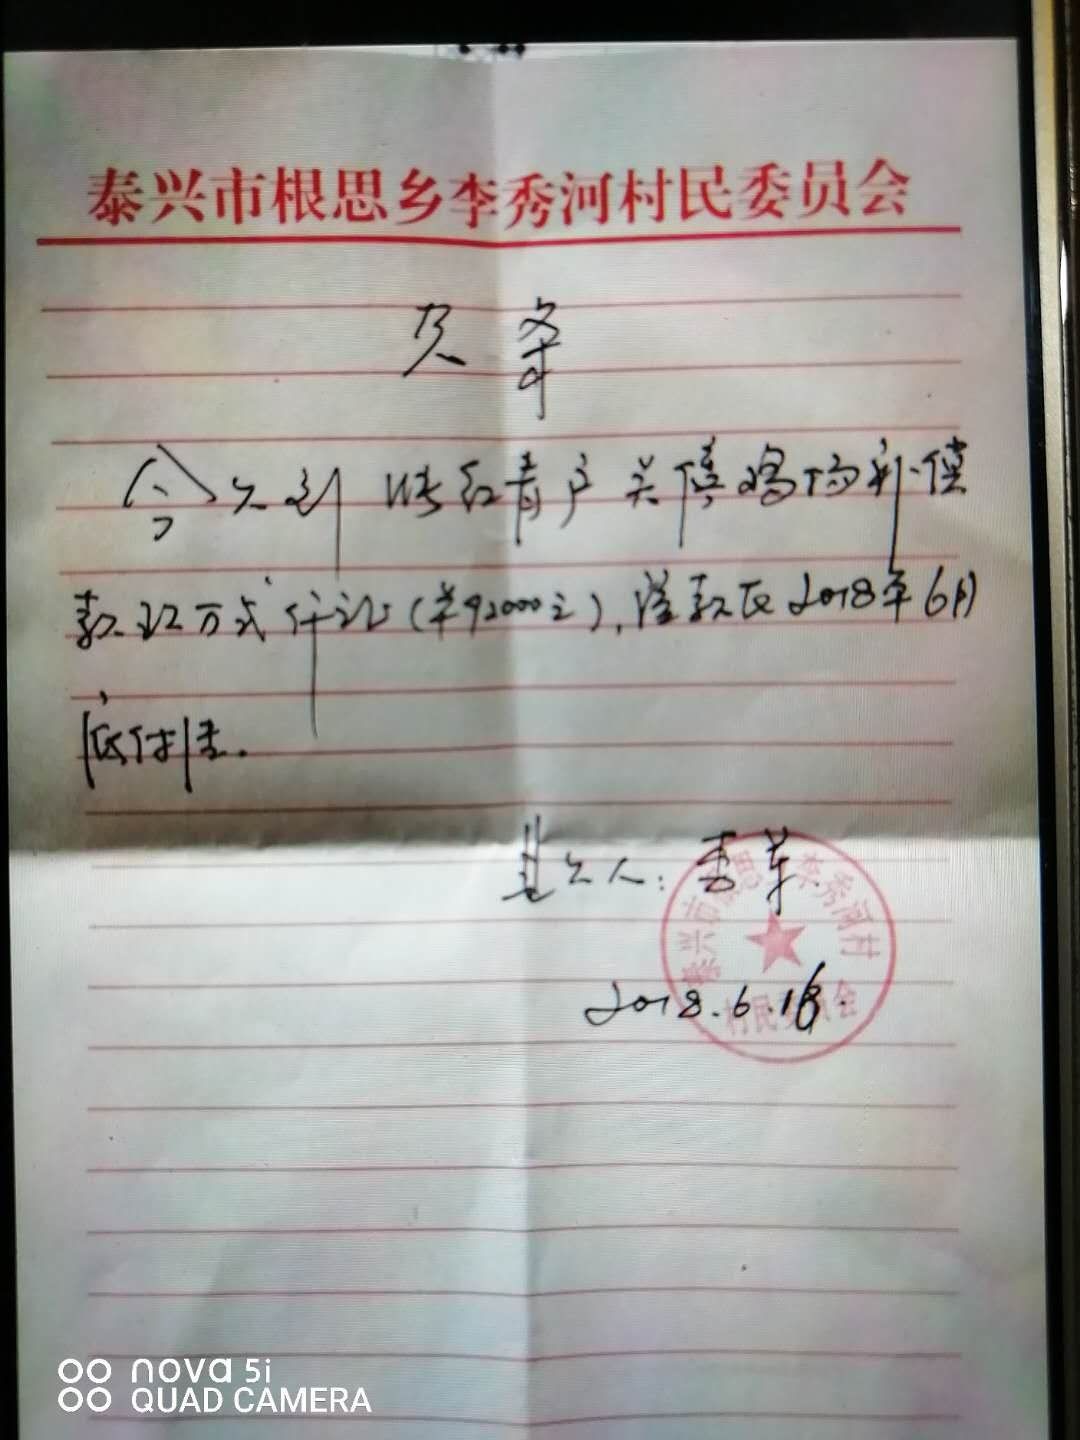 泰兴市根思乡李秀河村民委员会
欠条
今欠到 红青户关停鸡场补偿
款 万 仟 (¥92000元),该款在2018年6月
底付清.
具欠人:李
2018.6.18.
泰兴市根思乡李秀河村
村民委员会
nova 5i
QUAD CAMERA